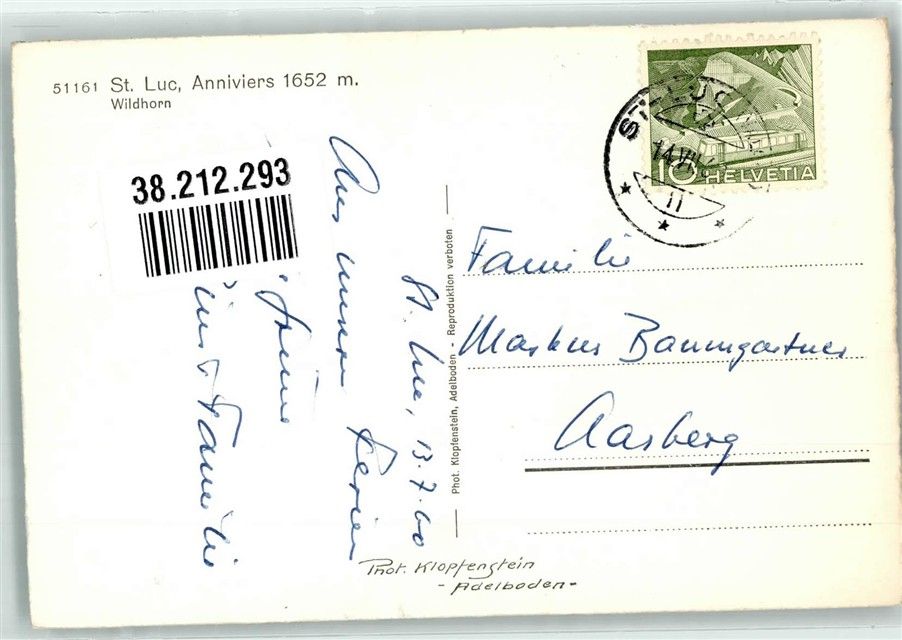 51161 St. Luc, Anniviers 1652 m.
Wildhorn
38.212.293
St. Luc, 13.7.60
Aus unseren Ferien
und Familie
Phot. Klopfenstein, Adelboden - Reproduktion verboten
10 HELVETIA
ST-LUC
14.VII
11
Familie
Markus Baumgartner
Aarberg
Phot. Klopfenstein
- Adelboden -